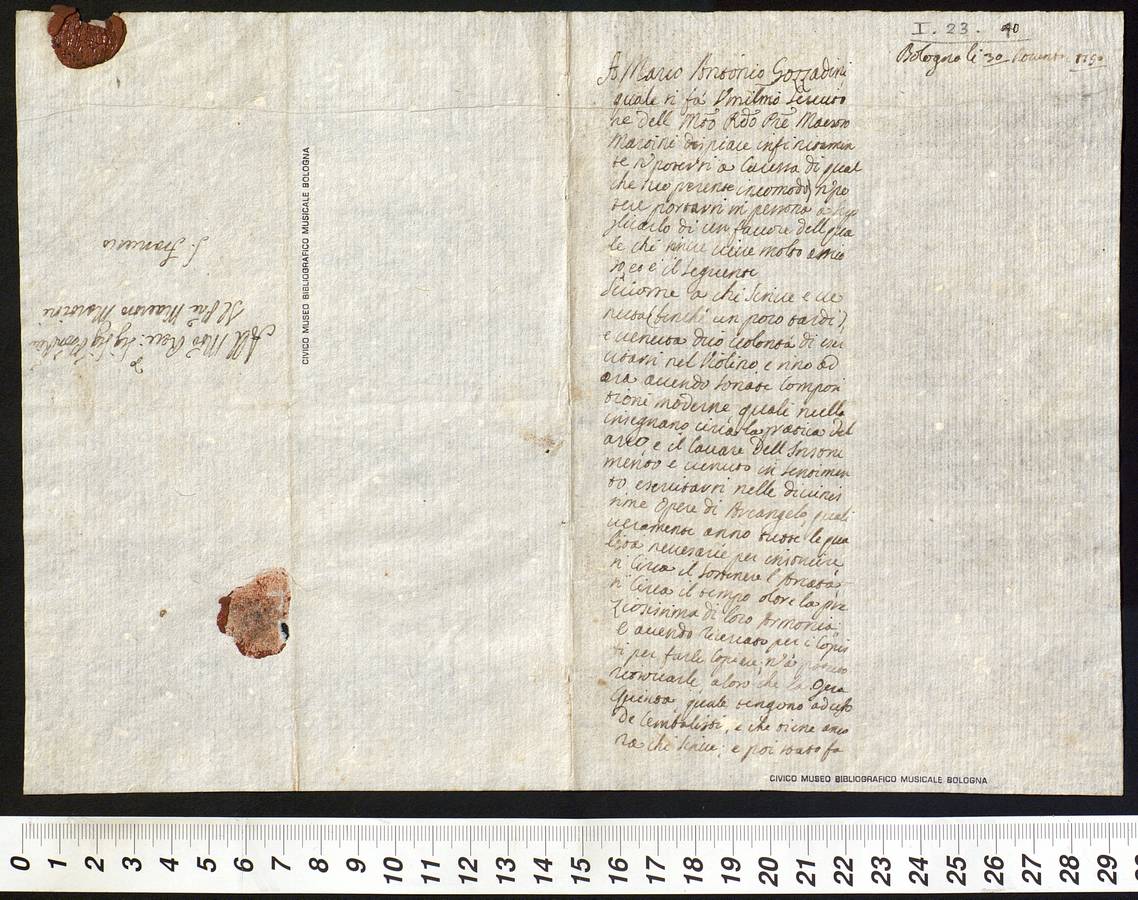 I. 23. 40
Bologna li 30
A Marco Antonio Gozzadini
quale si fà Umilmo Servito
re dell Mto Rdo Pre Maestro
Martini dispiace infinitamen
te n' potersi a Causa di qual
che suo presente incomodo, n' po
tere portarsi in persona a sup
plicarlo di un favore dell qua
le chi scrive vive molto ansio
so, ed è il seguente
Siccome a chi scrive e ve
nuta (binchè un poco tardi),
e venuta dico Volontà di eser
citarsi nel Violino, e sino ad
ora avendo sonate Composi
tioni moderne quali nulla
insegnano circa la pratica del
arco, e il Cavare Dell Instro
mento e venuto in sentimen
to esercitarsi nelle divinis
sime Opere di Arcangelo, quali
veramente anno tutte le qua
lità necesarie per instruire
si Circa il sostenere l' Arcata
si Circa il tempo oltre la pre
ziosissima di loro Armonia:
E avendo ricercato per i Copis
ti per farle Copiare, n' à potuto
ritrovarle altro che la Opera
Quinta, quale tengono ad uso
de Cembalisti, e che tiene anco
ra chi scrive; e poi stato fa
CIVICO MUSEO BIBLIOGRAFICO MUSICALE BOLOGNA
CIVICO MUSEO BIBLIOGRAFICO MUSICALE BOLOGNA
All Mto Rev:
Il Pre Maestro Martini
S. Francesco
0 1 2 3 4 5 6 7 8 9 10 11 12 13 14 15 16 17 18 19 20 21 22 23 24 25 26 27 28 29